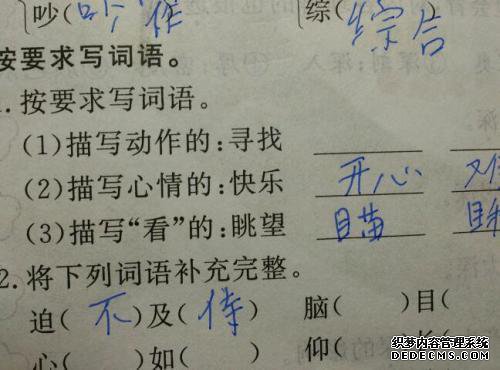 吵(      综(
按要求写词语。
1.按要求写词语。
(1)描写动作的:寻找
(2)描写心情的:快乐 开心
(3)描写“看”的:眺望 瞄
2.将下列词语补充完整。
迫( 不 )及( 待 ) 脑(  )目(
心(  )如(  ) 仰(
织梦内容管理系统
DEDECMS.COM